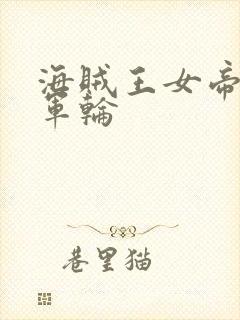 海贼王女帝
軍輪
巷里猫